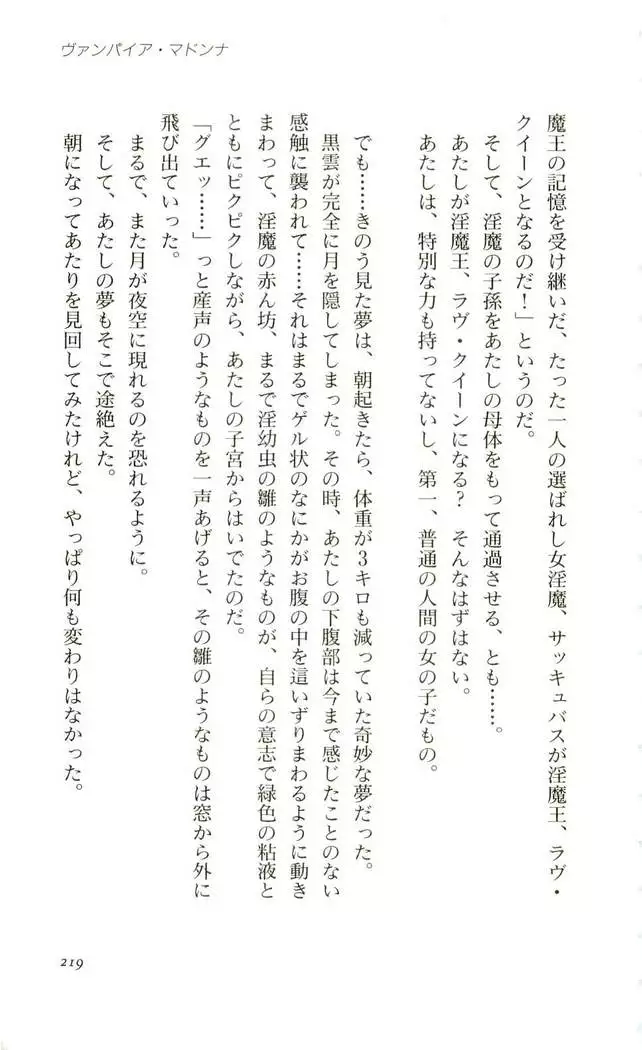 ヴァンパイア・マドンナ
魔王の記憶を受け継いだ、たった一人の選ばれし女淫魔、サッキュバスが淫魔王、ラヴ・
クイーンとなるのだ！」というのだ。
そして、淫魔の子孫をあたしの母体をもって通過させる、とも……。
あたしが淫魔王、ラヴ・クイーンになる？　そんなはずはない。
あたしは、特別な力も持ってないし、第一、普通の人間の女の子だもの。
でも……きのう見た夢は、朝起きたら、体重が３キロも減っていた奇妙な夢だった。
黒雲が完全に月を隠してしまった。その時、あたしの下腹部は今まで感じたことのない
感触に襲われて……それはまるでゲル状のなにかがお腹の中を這いずりまわるように動き
まわって、淫魔の赤ん坊、まるで淫幼虫の雛のようなものが、自らの意志で緑色の粘液と
ともにピクピクしながら、あたしの子宮からはいでたのだ。
「グエッ……」っと産声のようなものを一声あげると、その雛のようなものは窓から外に
飛び出ていった。
まるで、また月が夜空に現れるのを恐れるように。
そして、あたしの夢もそこで途絶えた。
朝になってあたりを見回してみたけれど、やっぱり何も変わりはなかった。
219